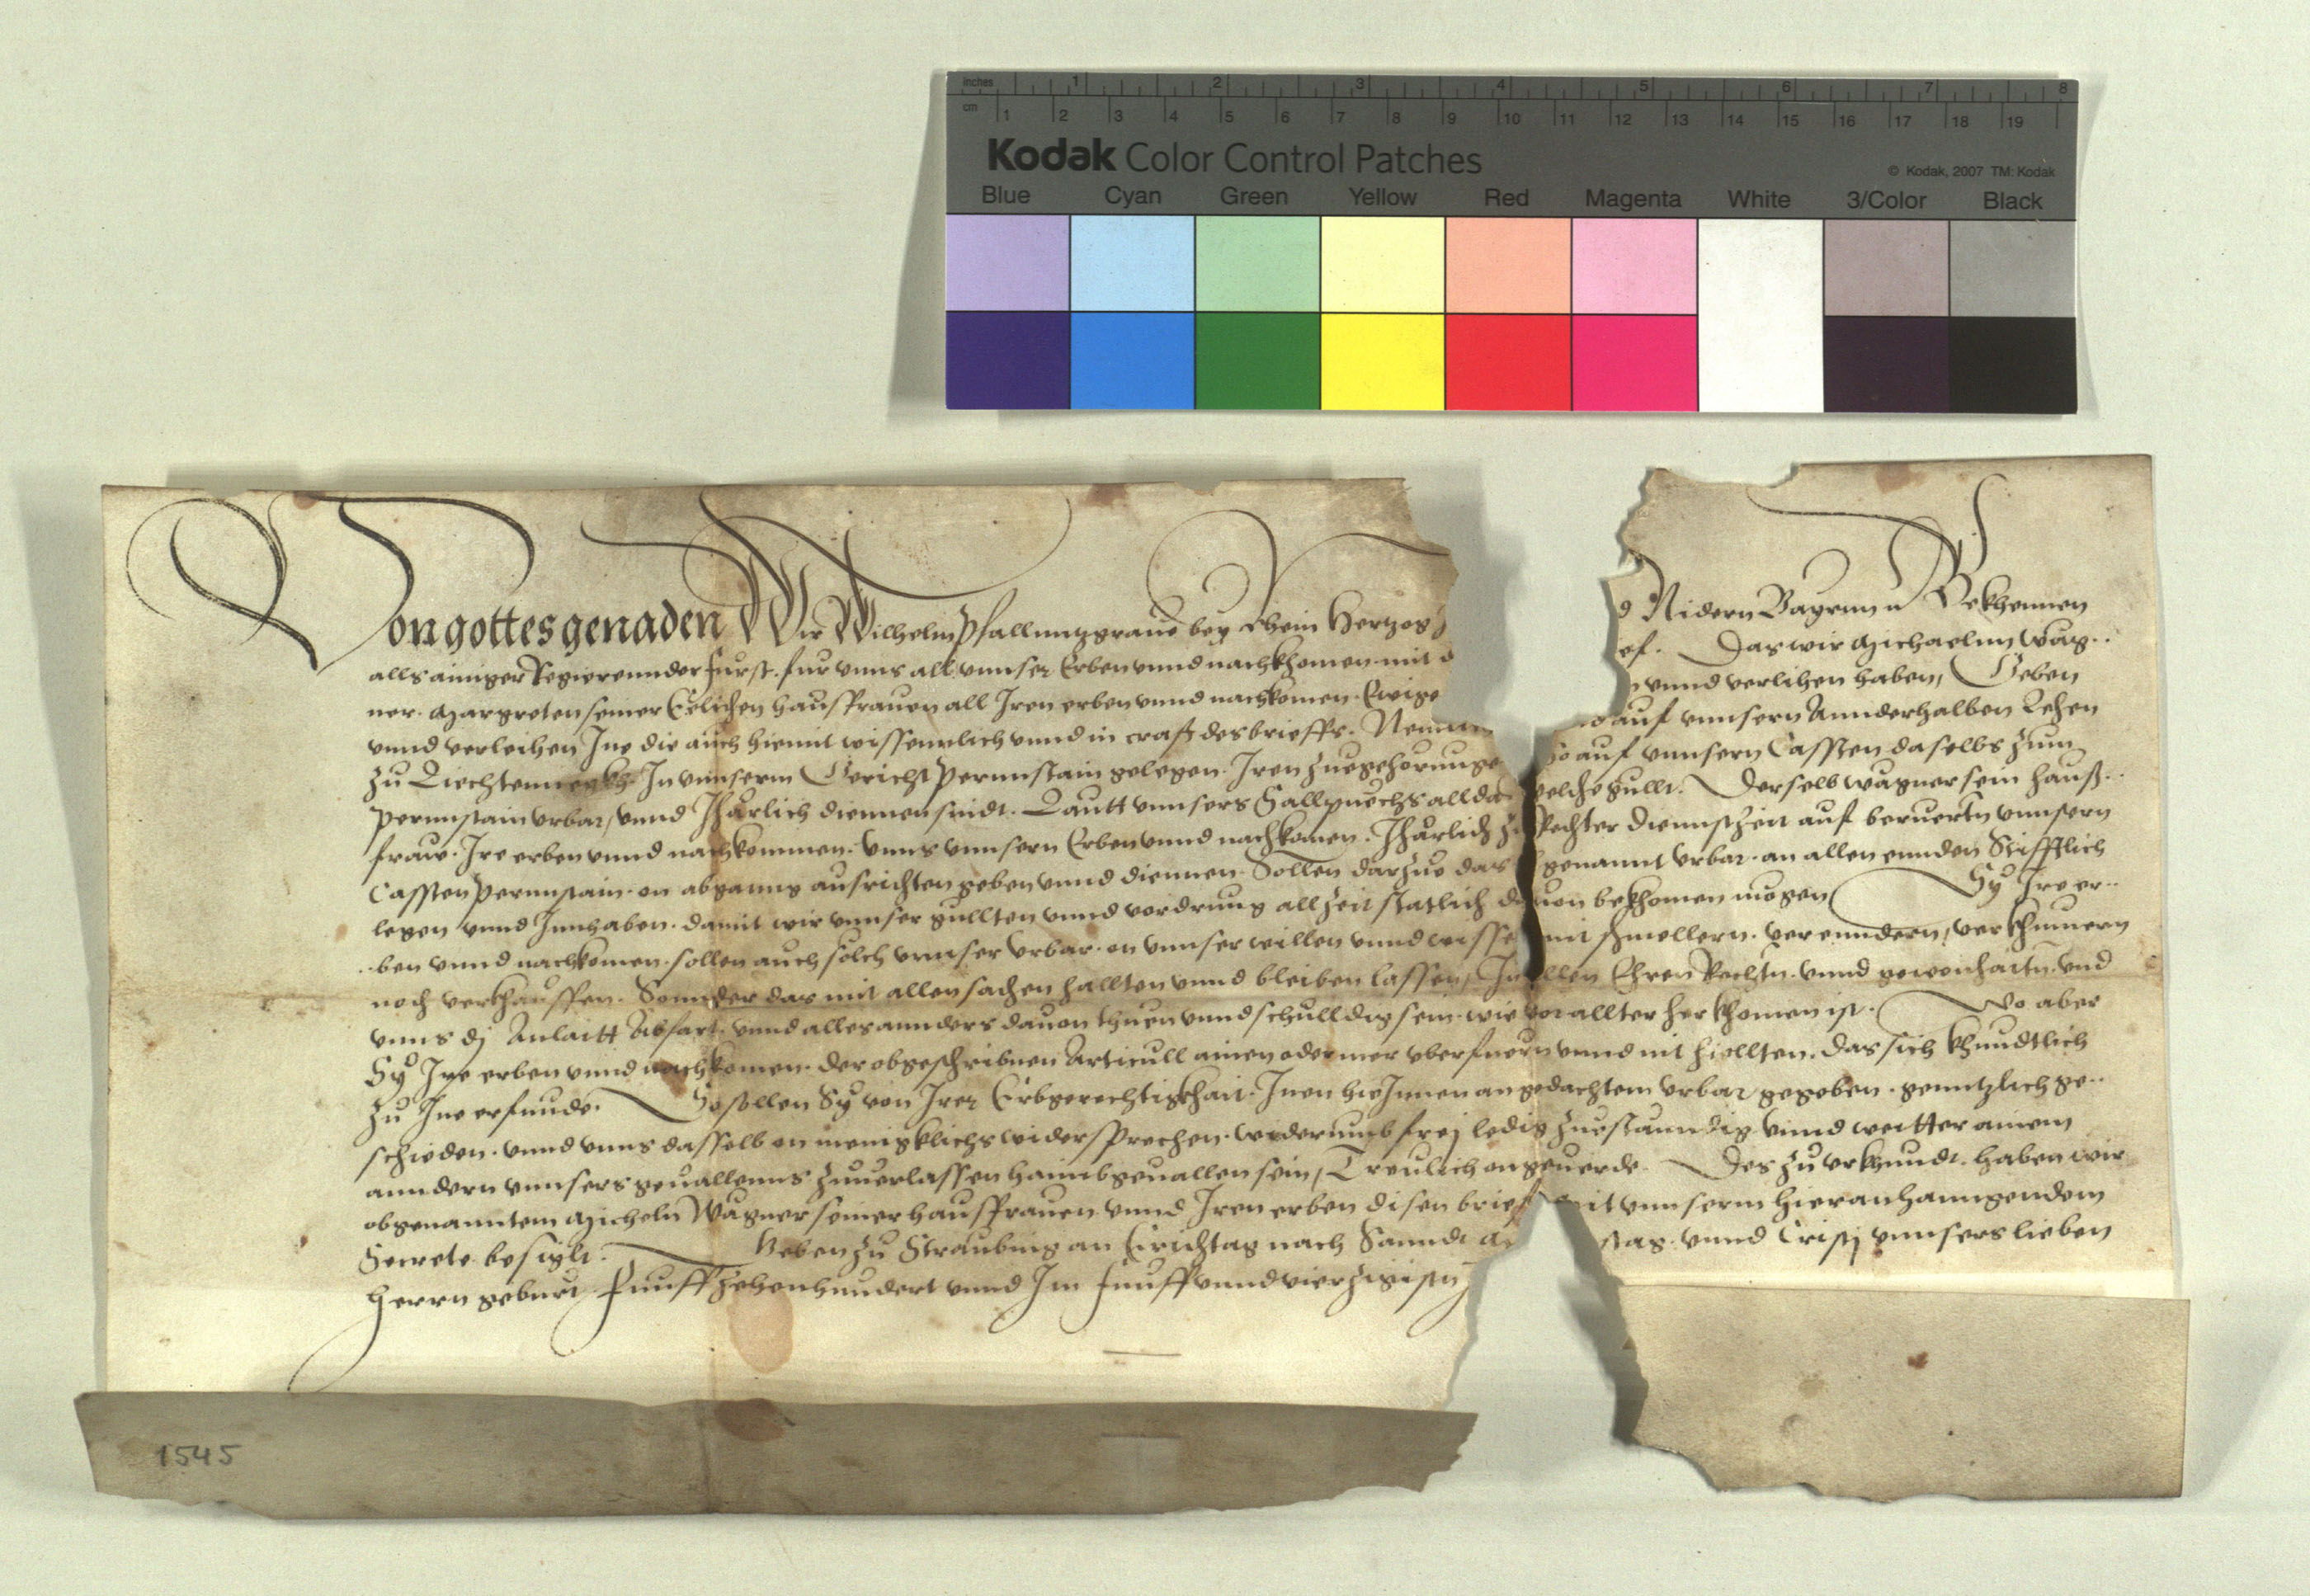 inches 1 2 3 4 5 6 7 8
cm 1 2 3 4 5 6 7 8 9 10 11 12 13 14 15 16 17 18 19
Kodak Color Control Patches
© Kodak, 2007 TM: Kodak
Blue Cyan Green Yellow Red Magenta White 3/Color Black
Von gottes genaden Wir Wilhelm Pfallenntzgraue bey Rhein Hertzog Nidern Bayrnn Bekhennen
alls ainiger Regierennder Furst. fur vnns all vnnser Erben vnnd nachkhomen mit Das wir Michaeln Wag..
ner. Margreten seiner Eelichen hausfrauen all Iren erben vnnd nachkomen. Ewige vnnd verlihen haben, Geben
vnnd verleihen Ine die auch hiemit wissenntlich vnnd in craft des brieffs. auf vnnsern Annderhalben Lehen
zu In vnnserm Gericht Pernnstain gelegen. Iren zuegehorunge so auf vnnsern Cassten daselbs zum
Pernnstain vrbar, vnnd Jhärlich diennen sindt. Lautt vnnsers Sallpuechs allda welche gullt. Derselb Wagner sein hauß..
fraw. Ire erben vnnd nachkommen. vnns vnnsern Erben vnnd nachkomen. Jhärlich zu Rechter diennstzeit auf beruertn vnnsern
Cassten Pernnstain. on abganng ausrichten geben vnnd diennen. Sollen darzue das genannt vrbar. an allen ennden Stifftlich
legen vnnd Innhaben. damit wir vnnser gullten vnnd vordrung allzeit statlich dauon bekhomen mögen Sy Ire er..
..ben vnnd nachkomen. sollen auch solch vnnser vrbar. on vnnser willen vnnd wissen nit schmellern. verenndern, verkhumern
noch verkhauffen. Sonnder das mit allen sachen hallten vnnd bleiben lassen, In allen Ehren Rechtn. vnnd gewonhaitn. vnd
vnns dj Anlaitt Abfart. vnnd alles annders dauon thuen vnnd schulldig sein. wie vor allter herkhomen ist. Wo aber
Sy Ire erben vnnd nachkomen. der obgeschribnen Articull ainen oder mer vberfuern vnnd nit hiellten. das sich khundtlich
zu Ine erfunde. So sollen Sy von Irer Erbgerechtigkhait. Inen hieInnen an gedachtem vrbar gegeben. genntzlich ge..
schieden. vnnd vnns dasselb on menigklichs widersprechen. widerumb frej ledig zuestanndig. vnnd weitter ainem
anndern vnnsers geuallenns zuuerlassen haimbgeuallen sein, Treulich ongeuerde. Des zu vrkhundt. haben wir
obgenanntem Micheln Wagner seiner hausfrauen vnnd Iren erben disen brief mit vnnserm hieran hanngendem
Secrete besiglt. Geben zu Straubing an Erichtag nach Sanndt stag. vnnd Cristj vnnsers lieben
Herrn geburt Funffzehenhundert vnnd Im funffvnndvierzigistn
1545